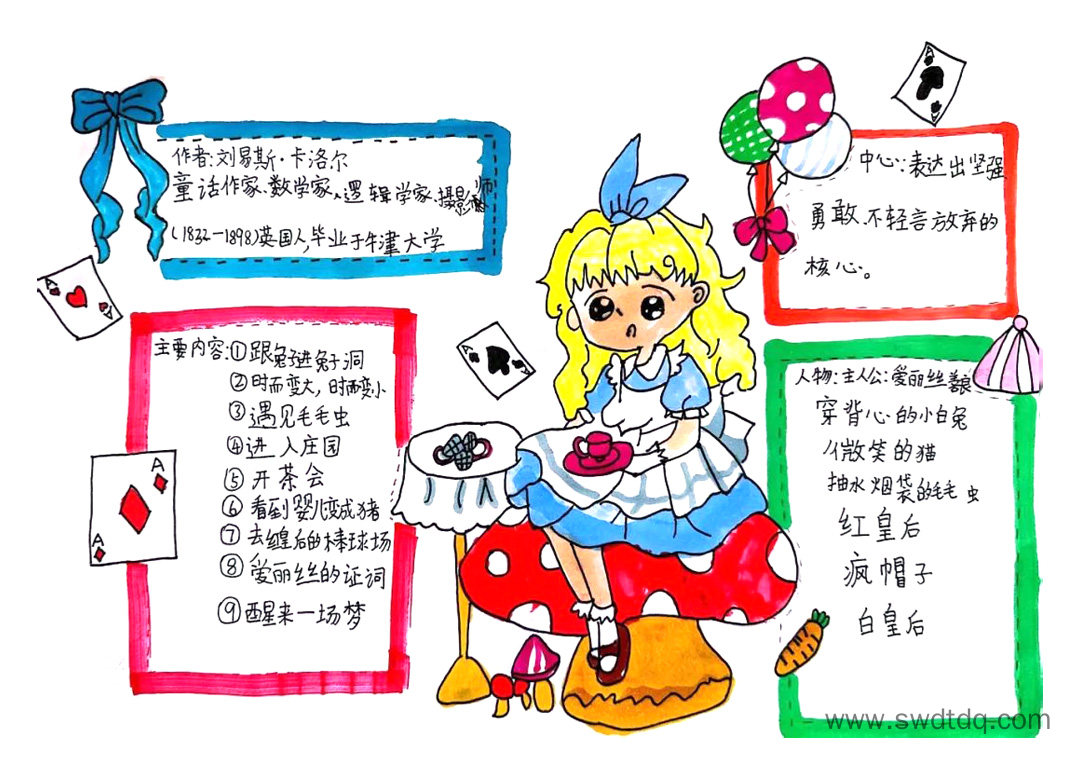 作者:刘易斯·卡洛尔
童话作家、数学家、逻辑学家、摄影师
(1832—1898)英国人,毕业于牛津大学
主要内容:①跟兔子进兔子洞
②时而变大,时而变小
③遇见毛毛虫
④进入庄园
⑤开茶会
⑥看到婴儿变成猪
⑦去皇后的棒球场
⑧爱丽丝的证词
⑨醒来一场梦
中心:表达出坚强
勇敢、不轻言放弃的
核心。
人物:主人公:爱丽丝
穿背心的小白兔
微笑的猫
抽水烟袋的毛毛虫
红皇后
疯帽子
白皇后
A
A
A
A
A
A
www.swdtdq.com